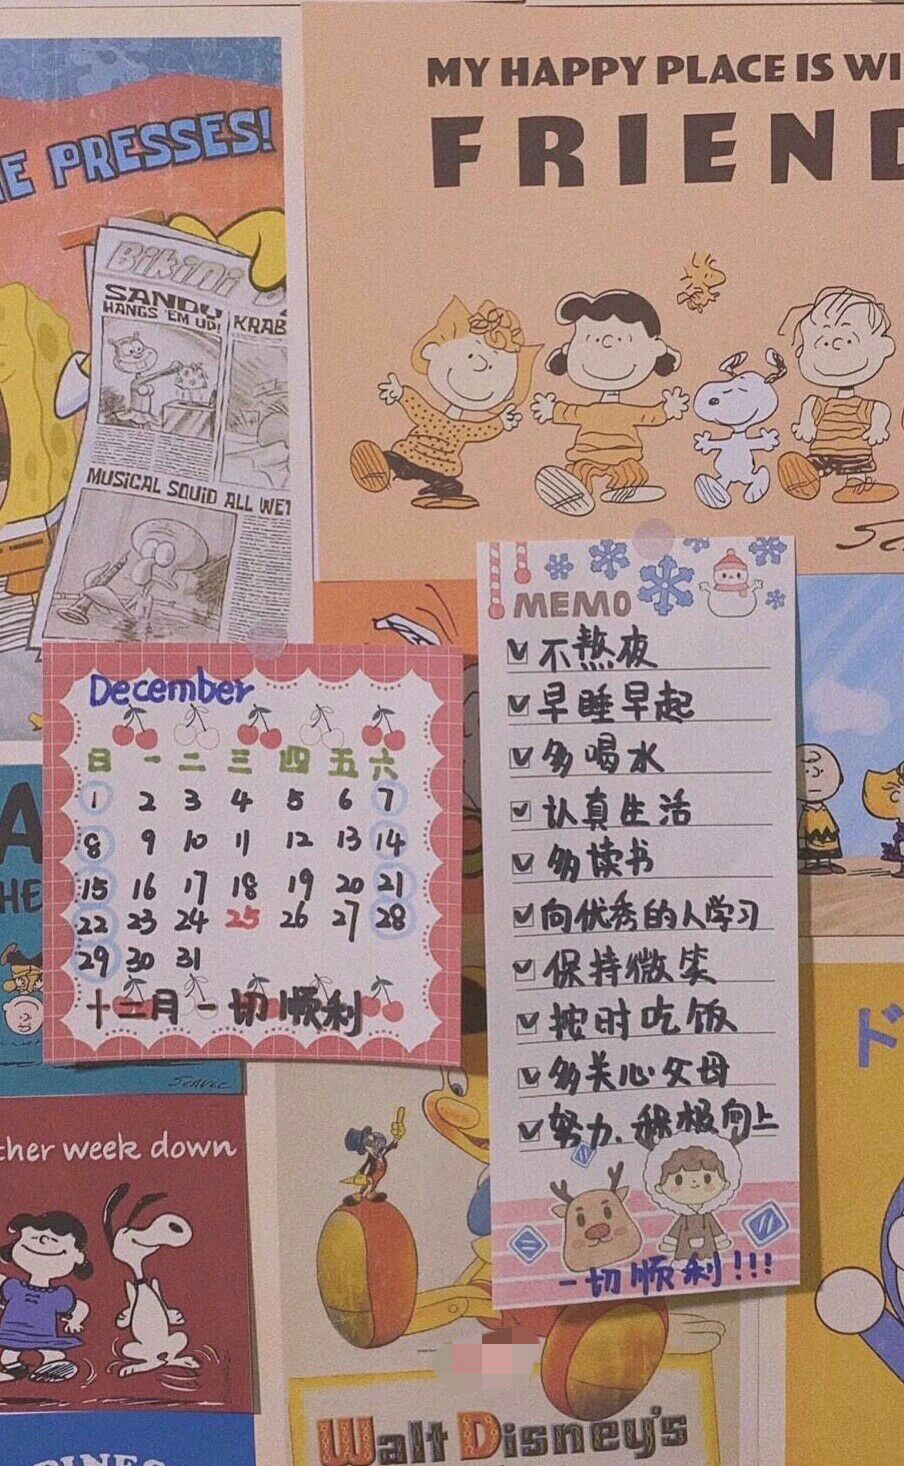 MY HAPPY PLACE IS WI
FRIEND
HE PRESSES!
Bikini B
SANDY
HANGS 'EM UP!
KRAB
MUSICAL SQUID ALL WET
December
日 一 二 三 四 五 六
1 2 3 4 5 6 7
8 9 10 11 12 13 14
15 16 17 18 19 20 21
22 23 24 25 26 27 28
29 30 31
十二月一切顺利
MEMO
不熬夜
早睡早起
多喝水
认真生活
多读书
向优秀的人学习
保持微笑
按时吃饭
多关心父母
努力、积极向上
一切顺利!!!
A
HE
ド
ther week down
Walt Disney's
PINES